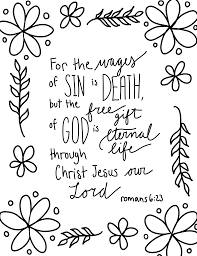 For the wages
of SIN is DEATH,
but the free gift
of GOD is eternal
life
through
Christ Jesus our
Lord
romans 6:23